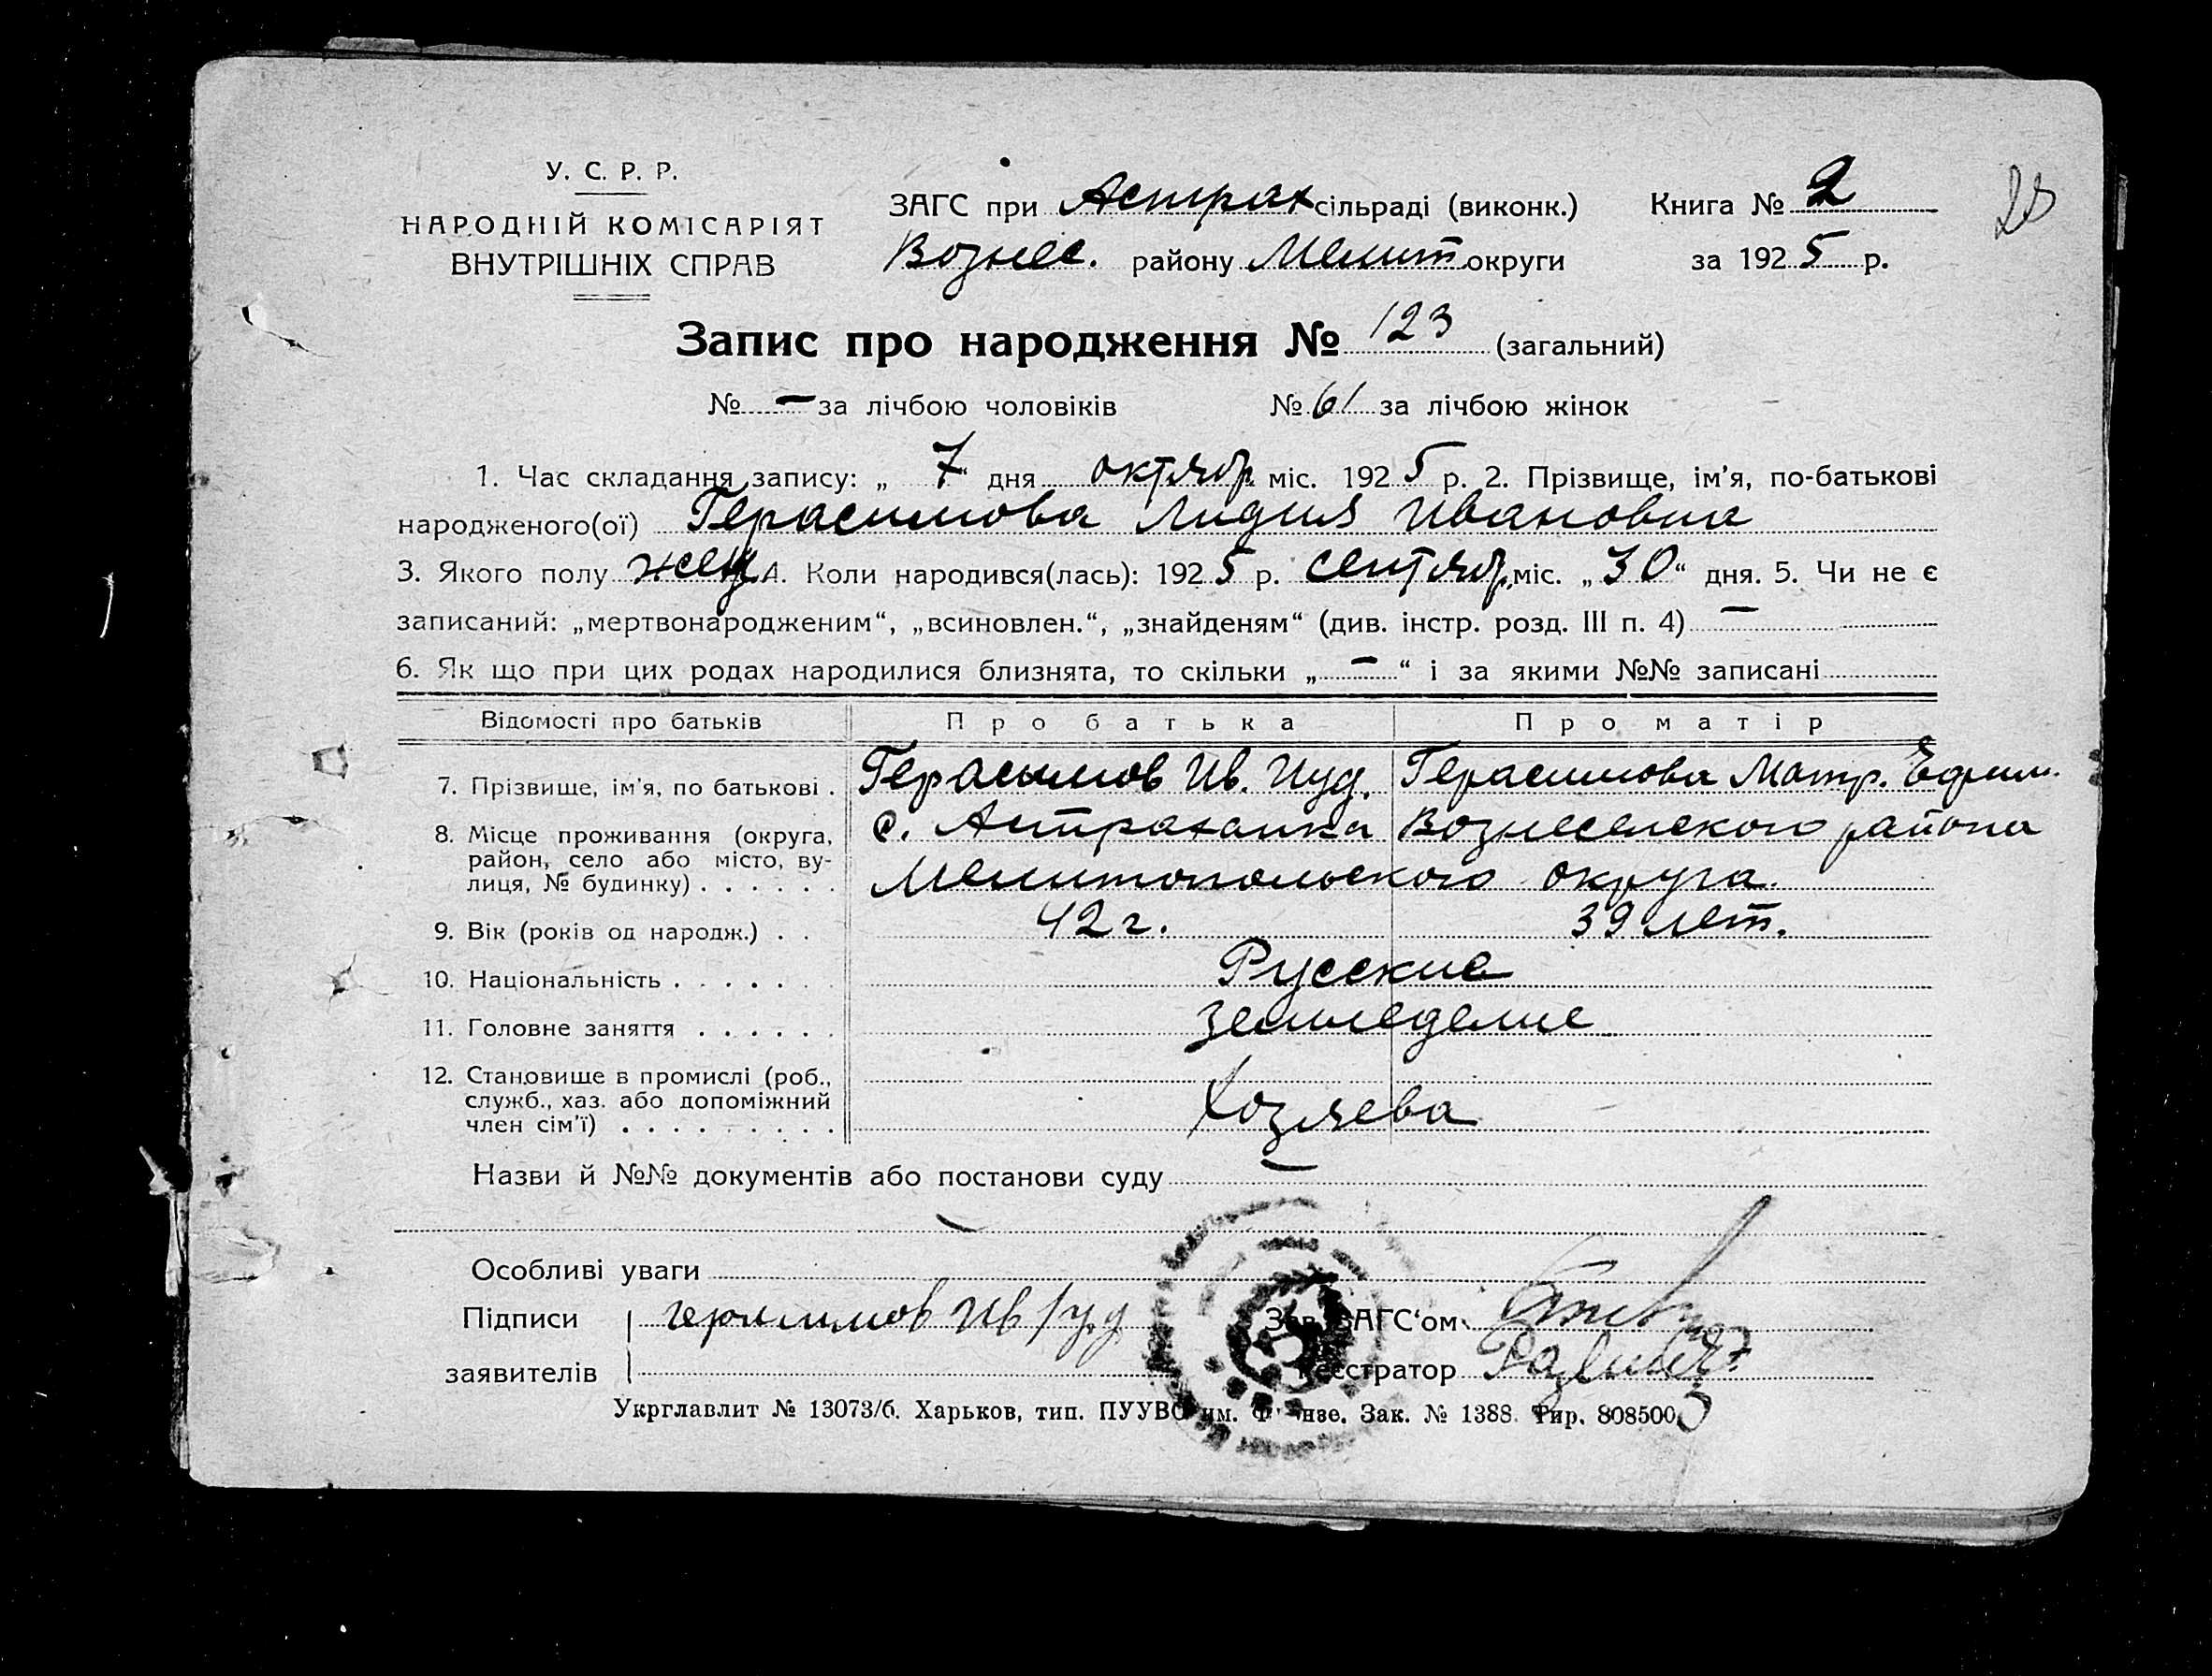 У. С. Р. Р.
НАРОДНІЙ КОМІСАРІЯТ
ВНУТРІШНІХ СПРАВ
ЗАГС при Астрах сільраді (виконк.) Книга № 2
Вознес. району Мелит округи за 1925 р.
28
Запис про народження № 123 (загальний)
№ — за лічбою чоловіків № 61 за лічбою жінок
1. Час складання запису: „ 7 " дня октябр. міс. 1925 р. 2. Прізвище, ім'я, по-батькові
народженого(ої) Герасимова Лидия Ивановна
3. Якого полу жен 4. Коли народився(лась): 1925 р. сентябр. міс. „30" дня. 5. Чи не є
записаний: „мертвонародженим", „всиновлен.", „знайденям" (див. інстр. розд. III п. 4) —
6. Як що при цих родах народилися близнята, то скільки „ — " і за якими №№ записані
Відомості про батьків Про батька Про матір
7. Прізвище, ім'я, по батькові . Герасымов Ив. Иуд. Герасимова Матр. Ефим.
8. Місце проживання (округа, с. Астраханка Вознесенского района
район, село або місто, ву-
лиця, № будинку) . . . . . . Мелитопольского округа.
9. Вік (років од народж.) . . 42 г. 39 лет.
10. Національність . . . . . . . Русские
11. Головне заняття . . . . . . земледелие
12. Становище в промислі (роб.,
служб., хаз. або допоміжний Хозяева
член сім'ї) . . . . . . . . .
Назви й №№ документів або постанови суду —
—
Особливі уваги
Підписи герасимов Ив Иуд Зав. ЗАГС'ом
заявителів Реєстратор
Укрглавлит № 13073/б. Харьков, тип. ПУУВО им. Фрунзе. Зак. № 1388. Тир. 808500